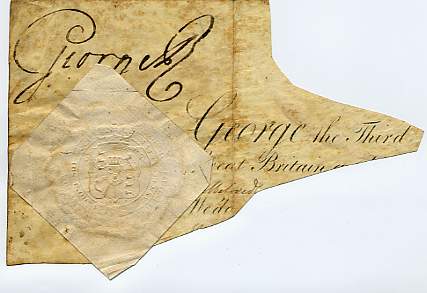 George R
George the Third
eat Britain
We do